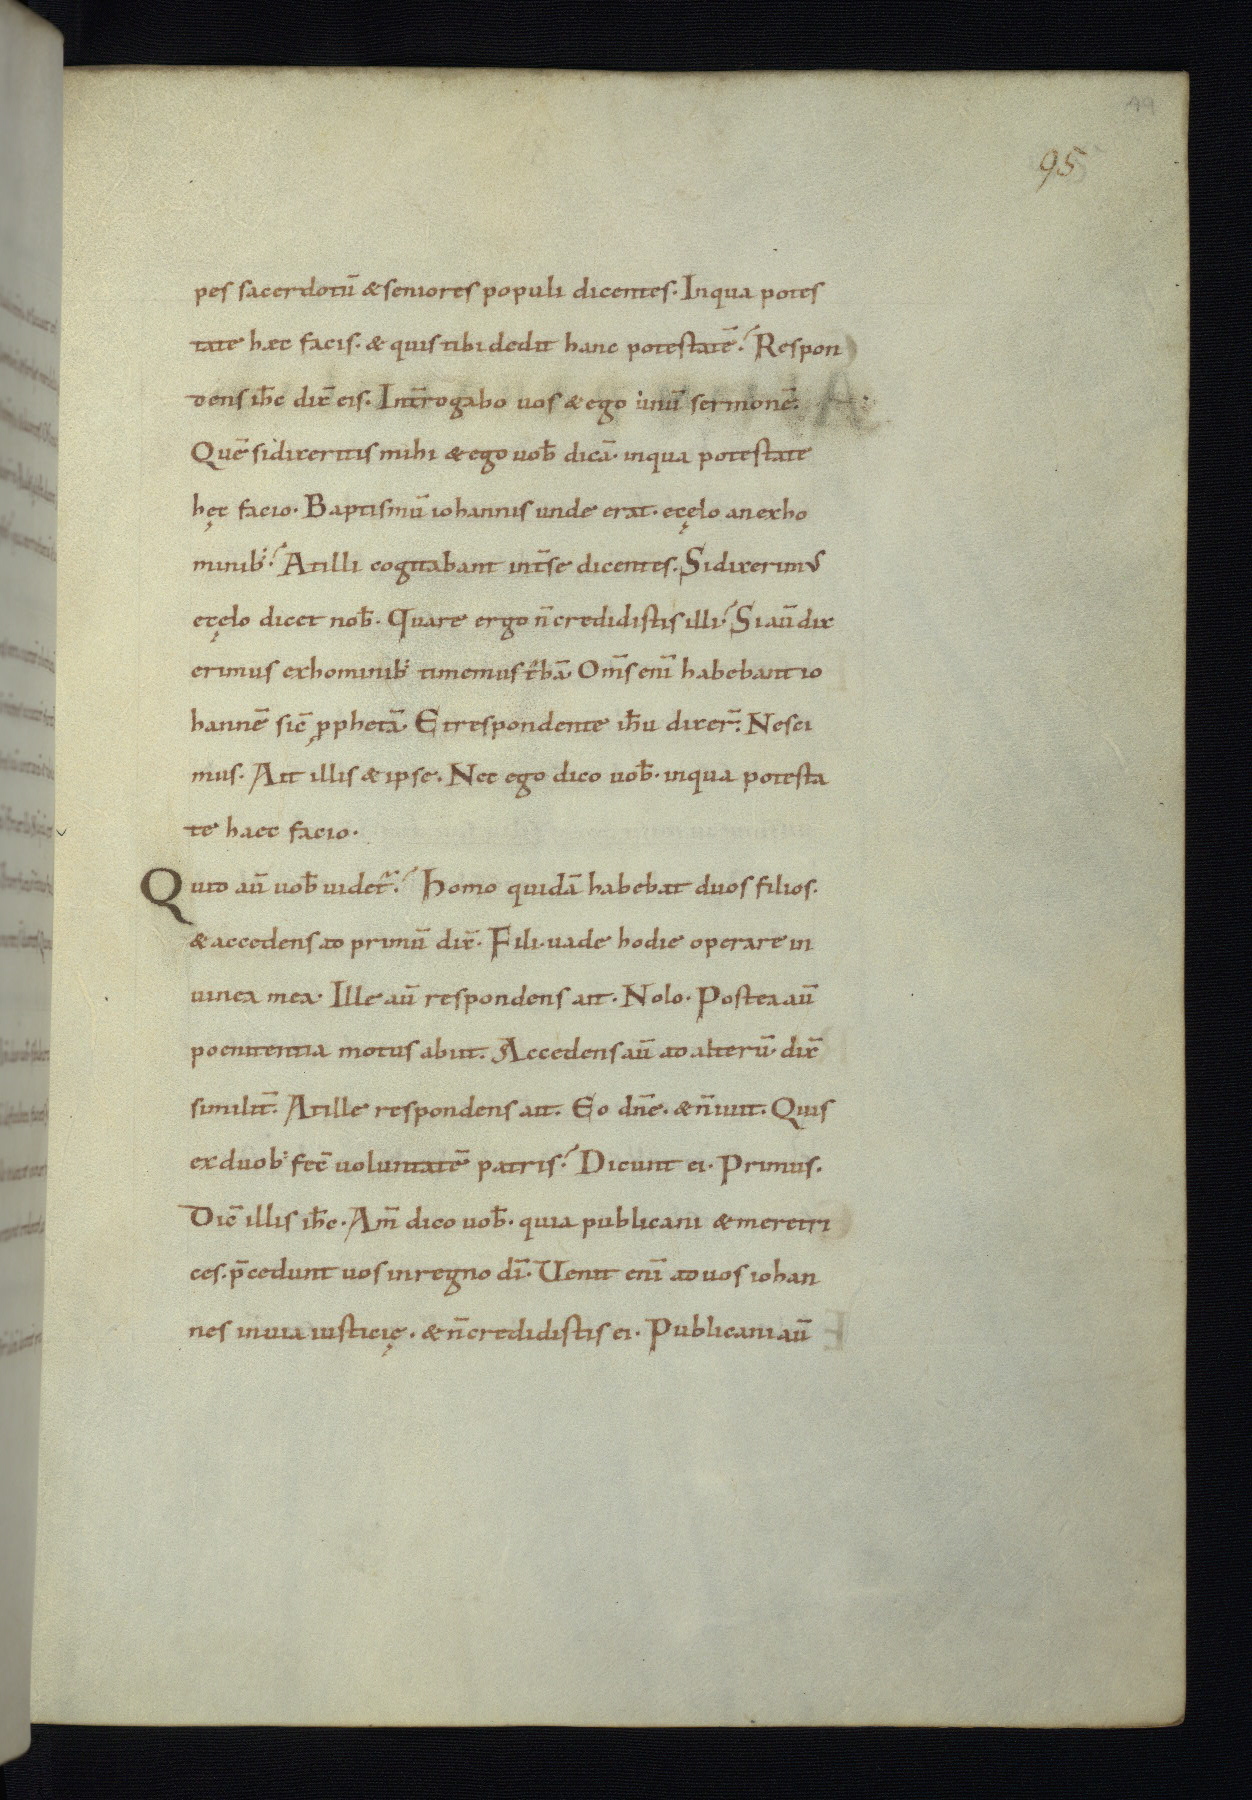 99
95
pes sacerdotū & seniores populi dicentes. In qua potes
tate hæc facis. & quis tibi dedit hanc potestatē? Respon
dens ih̄c dix̄ eis. Int̄rogabo uos & ego unū sermonē.
Quē si dixeritis mihi & ego uob̄ dicā. in qua potestate
hęc facio. Baptismū iohannis unde erat. e cęlo an ex ho
minib;? At illi cogitabant int̄ se dicentes. Si dixerimus
e cęlo dicet nob̄. Quare ergo n̄ credidistis illi? Si aū dix
erimus ex hominib; timemus t̄bā. Om̄s enī habebant io
hannē sic̄ ꝓphetā. Et respondente ih̄u dixer̄. Nesci
mus. Ait illis & ipse. Nec ego dico uob̄. in qua potesta
te haec facio.
Quid aū uob̄ uidet̄? Homo quidā habebat duos filios.
& accedens ad primū dix̄. Fili. uade hodie operare in
uinea mea. Ille aū respondens ait. Nolo. Postea aū
poenitentia motus abiit. Accedens aū ad alterū. dix̄
similit̄. At ille respondens ait. Eo dn̄e. & n̄ iuit. Quis
ex duob; fec̄ uoluntatē patris? Dicunt ei. Primus.
Dic̄ illis ih̄c. Am̄ dico uob̄. quia publicani & meretri
ces. p̄cedunt uos in regno dī. Uenit enī ad uos iohan
nes in uia iusticię. & n̄ credidistis ei. Publicani aū